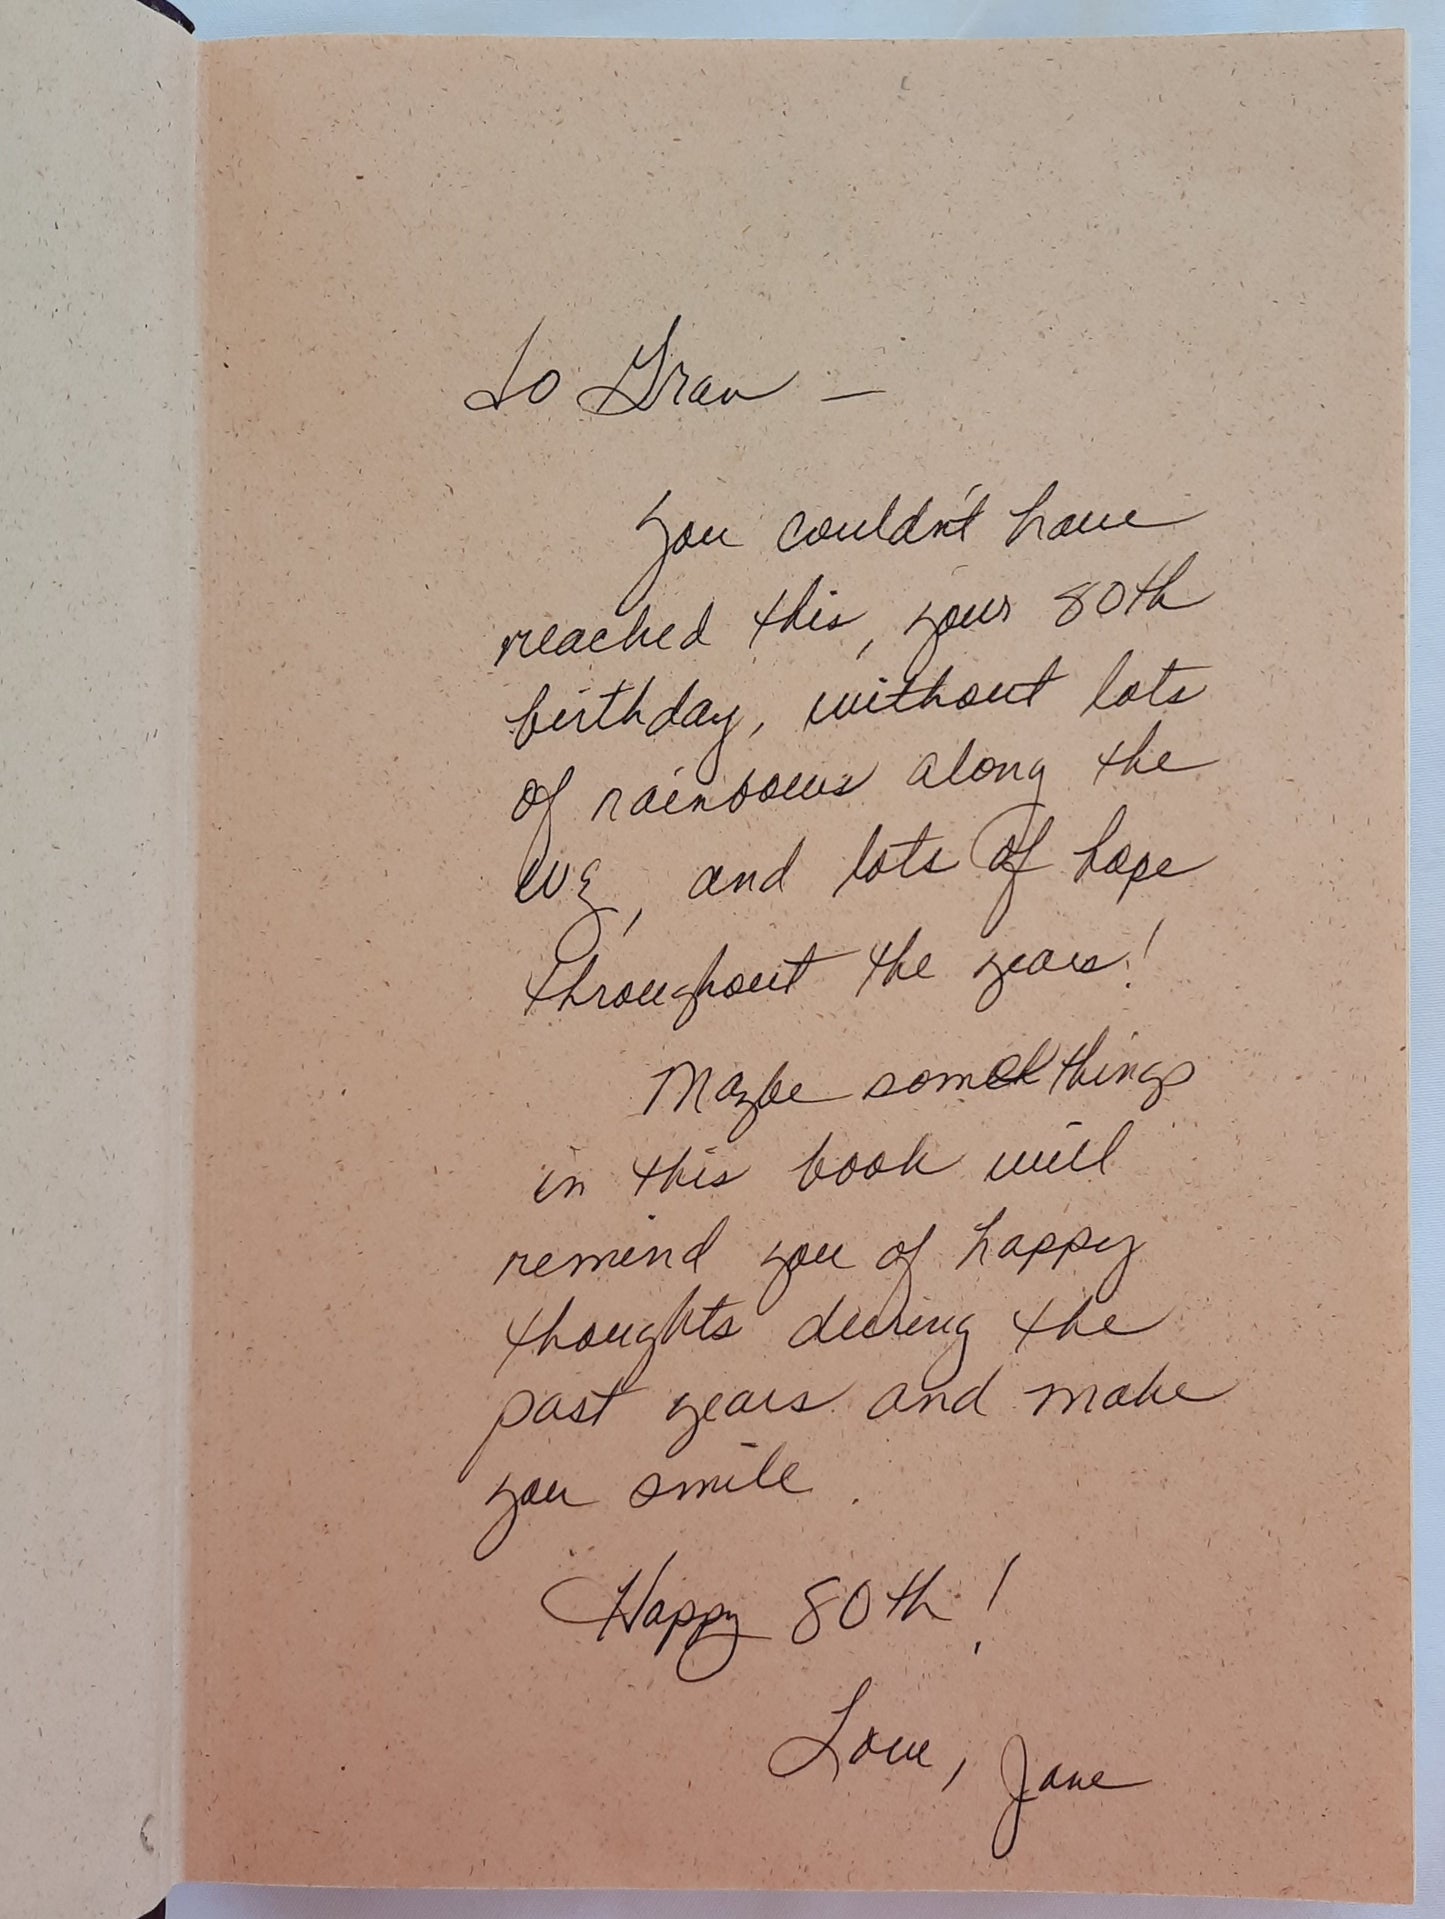 To Gran —
You couldn't have
reached this, your 80th
birthday, without lots
of rainbows along the
, and lots of hope
throughout the years!
Maybe some things
in this book will
remind you of happy
thoughts during the
past years and make
you smile.
Happy 80th!
Love, Jane